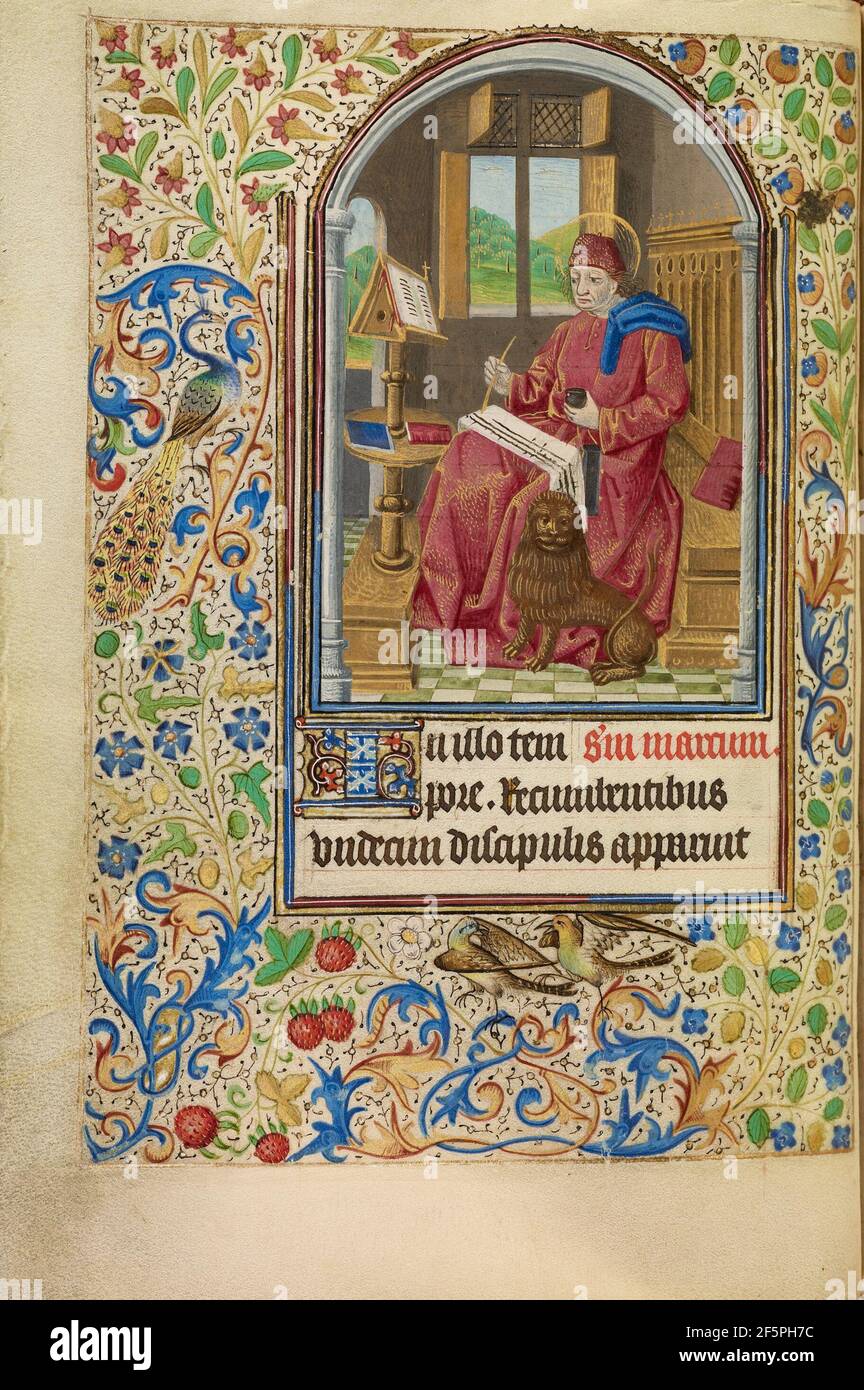 In illo tem S'm marcum.
pore. Recumbentibus
vndecim discipulis apparuit
alamy
alamy
Image ID: 2F5PH7C
www.alamy.com